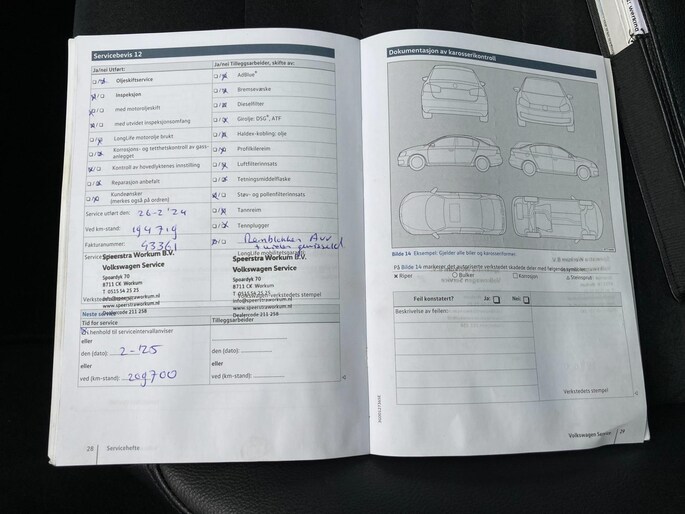 Servicebevis 12
Ja/nei Utført:
Oljeskiftservice
Inspeksjon
med motoroljeskift
med utvidet inspeksjonsomfang
LongLife motorolje brukt
Korrosjons- og tetthetskontroll av gass-
anlegget
Kontroll av hovedlyktenes innstilling
Reparasjon anbefalt
Kundeønsker
(merkes også på ordren)
Service utført den 26-2-'24
Ved km-stand: 194719
Fakturanummer: 43361
Ja/nei Tilleggsarbeider, skifte av:
AdBlue®
Bremsevæske
Dieselfilter
Girolje: DSG®, ATF
Haldex-kobling: olje
Profilkilereim
Luftfilterinnsats
Tetningsmiddelflaske
Støv- og pollenfilterinsats
Tannreim
Tennplugger
LongLife mobilitetsgaranti
Speerstra Workum B.V.
Volkswagen Service
Spoardyk 70
8711 CK Workum
T 0515 54 25 25
info@speerstraworkum.nl
www.speerstraworkum.nl
Dealercode 211 258
Speerstra Workum B.V.
Volkswagen Service
Spoardyk 70
8711 CK Workum
T 0515 54 25 25
info@speerstraworkum.nl
www.speerstraworkum.nl
Dealercode 211 258
Volkswagen-verkstedets stempel
Neste service
Tid for service
I henhold til serviceintervallanviser
eller
den (dato): 2-'25
eller
ved (km-stand): 209700
Tilleggsarbeider
den (dato):
eller
ved (km-stand):
28 Servicehefte
Dokumentasjon av karosserikontroll
Bilde 14 Eksempel: Gjelder alle biler og karosseriformer.
På Bilde 14 markerer det autoriserte verkstedet skadede deler med følgende symboler:
× Riper
Bulker
Korrosjon
Steinsprut
Feil konstatert? Ja: Nei:
Beskrivelse av feilen:
Verkstedets stempel
Volkswagen Service 29